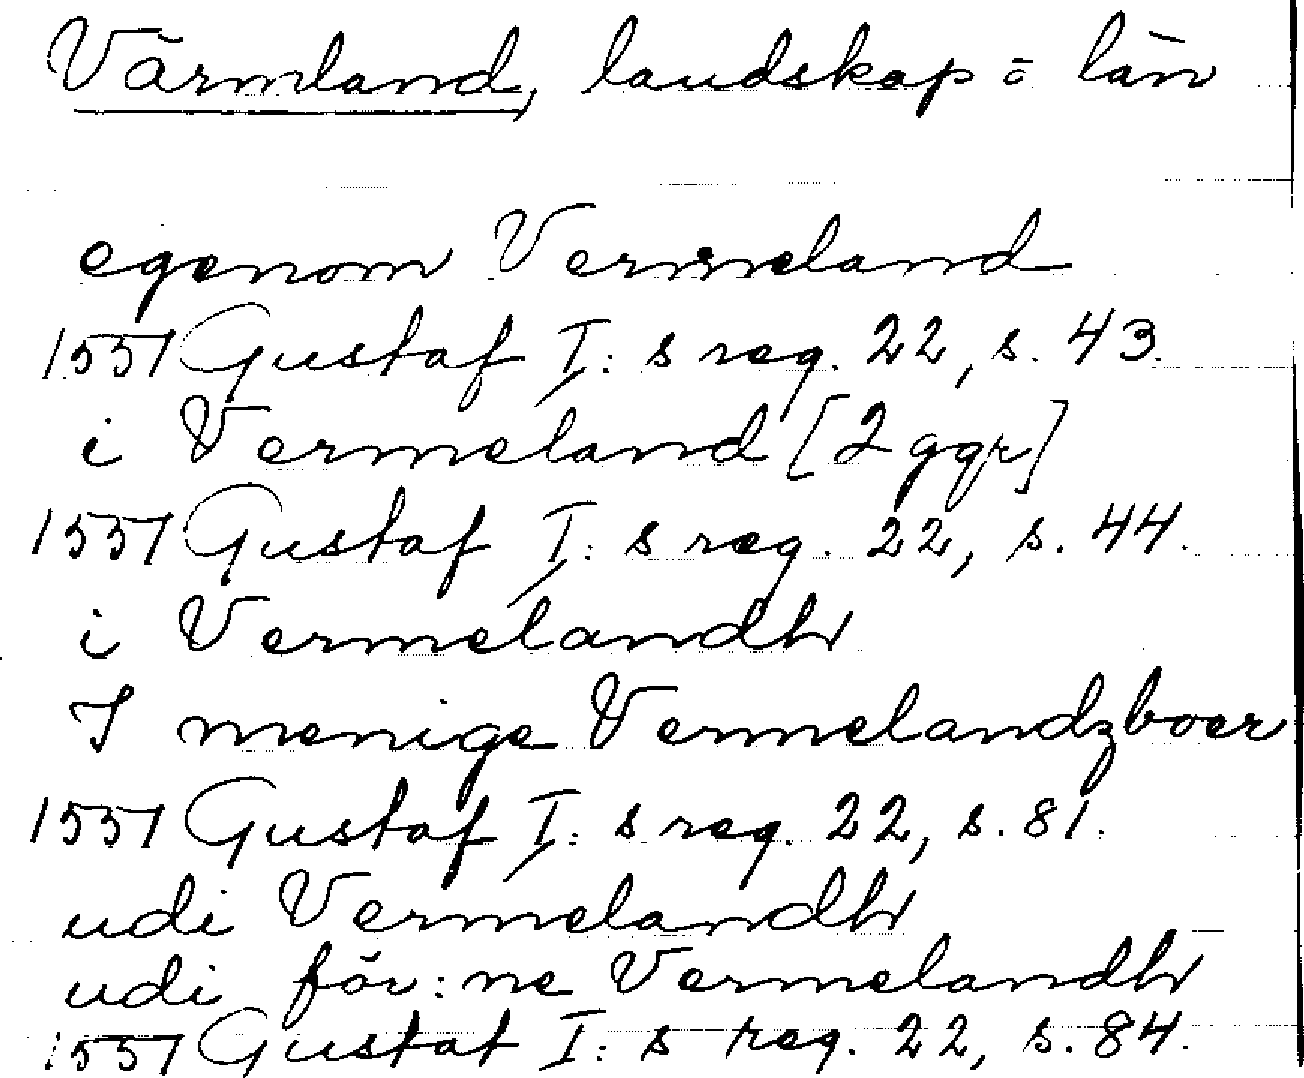 Värmland, landskap ō län
egenom Vermeland
1551 Gustaf I:s reg. 22, s. 43.
i Vermeland [2 ggr]
1551 Gustaf I:s reg. 22, s. 44.
i Vermelandh
I menige Vermelandzboer
1551 Gustaf I:s reg. 22, s. 81.
udi Vermelandh
udi för:ne Vermelandh
1551 Gustaf I:s reg. 22, s. 84.